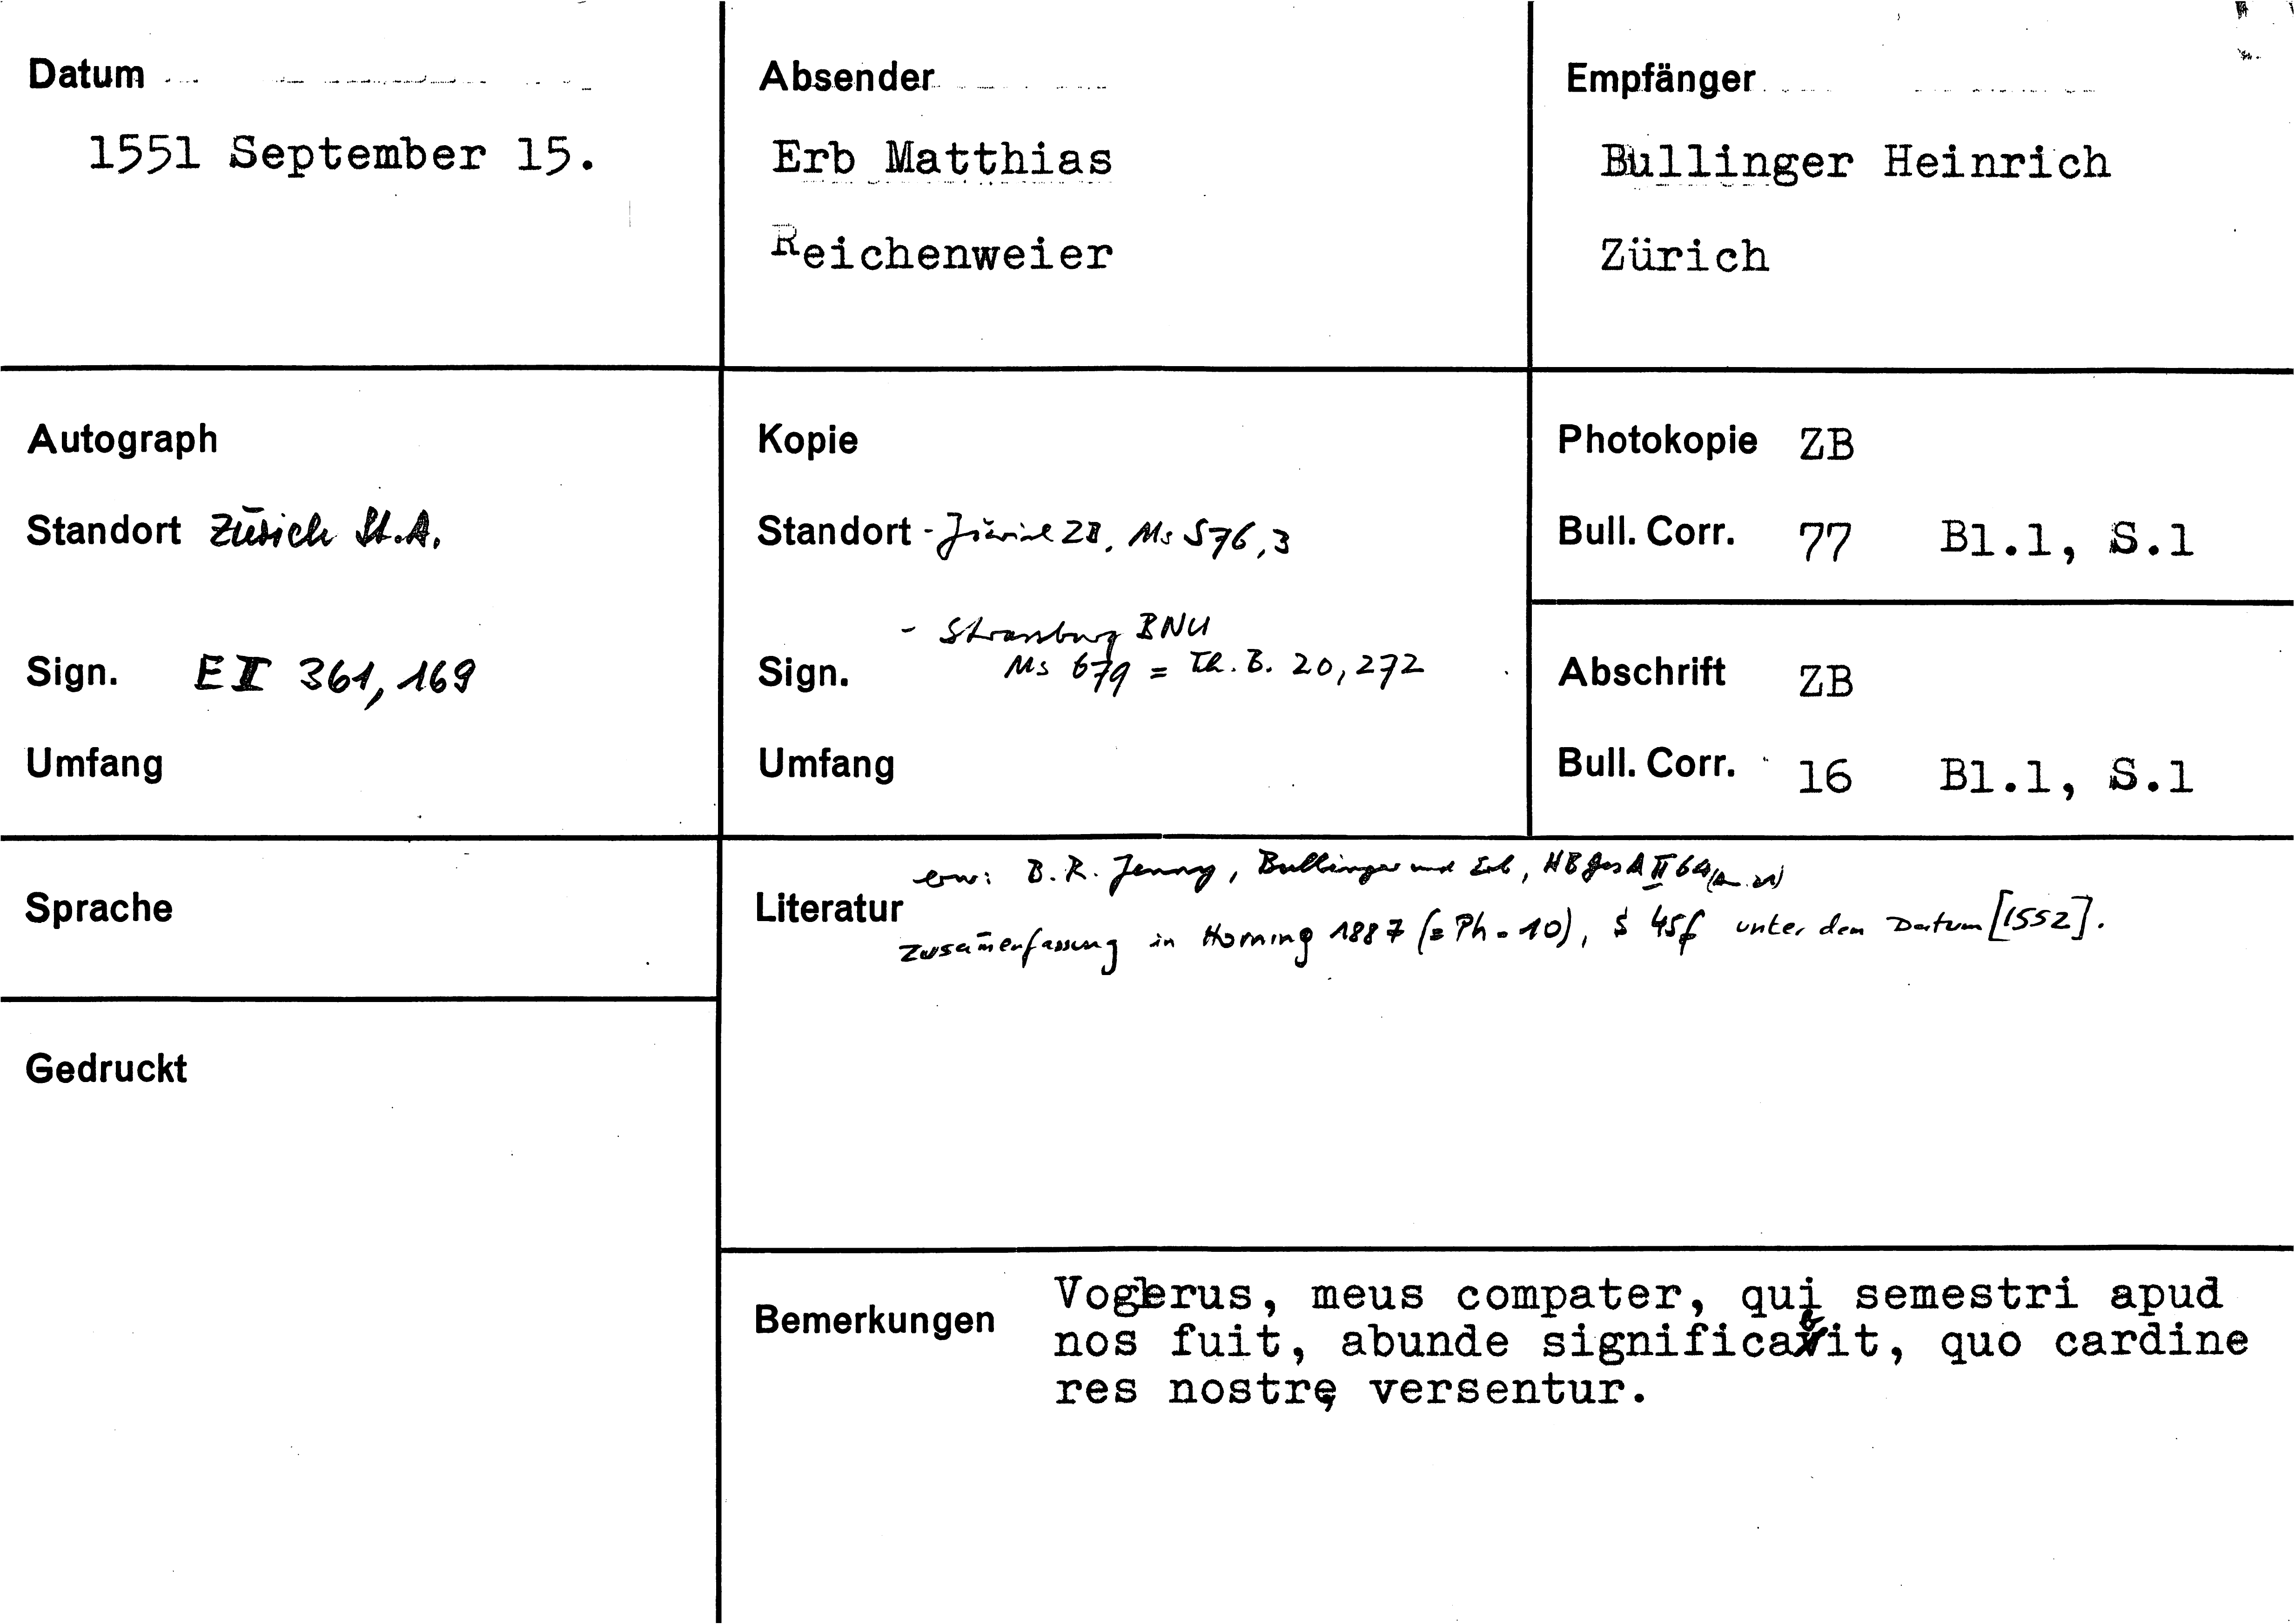 Datum
1551 September 15.
Absender
Erb Matthias
Reichenweier
Empfänger
Bullinger Heinrich
Zürich
Autograph
Standort Zürich St.A.
Sign. E II 361, 169
Umfang
Kopie
Standort - Zürich ZB, Ms S 76, 3
- Strassburg BNU
Sign. Ms 679 = Th. B. 20, 272
Umfang
Photokopie ZB
Bull. Corr. 77 Bl.1, S.1
Abschrift ZB
Bull. Corr. 16 Bl.1, S.1
Sprache
Gedruckt
erw: B. R. Jenny, Bullinger und Erb, HBGesA II 64
Literatur
Zusam̄enfassung in Horning 1887 (= Ph. 10), S 45f unter dem Datum [1552].
Bemerkungen
Voglerus, meus compater, qui semestri apud
nos fuit, abunde significabit, quo cardine
res nostrę versentur.